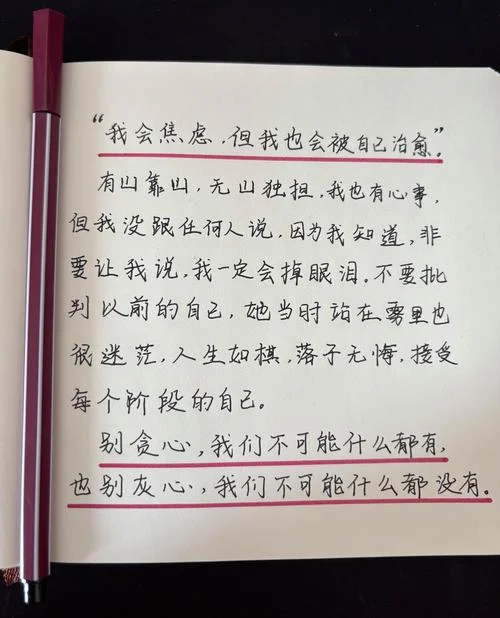 “我会焦虑，但我也会被自己治愈”。
有山靠山，无山独担，我也有心事，
但我没跟任何人说，因为我知道，非
要让我说，我一定会掉眼泪。不要批
判以前的自己，她当时站在雾里也
很迷茫，人生如棋，落子无悔，接受
每个阶段的自己。
别贪心，我们不可能什么都有，
也别灰心，我们不可能什么都没有。